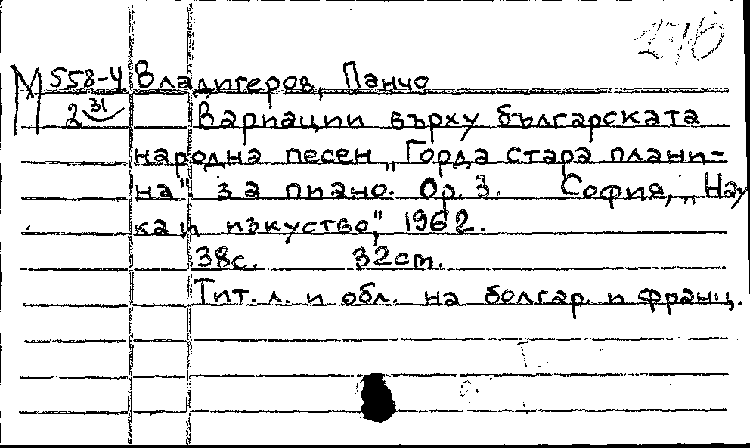 276
М 558-4 Владигеров, Панчо
2 31 Вариации върху българската
народна песен „Горда стара плани-
на" за пиано. Op. 3. София, „Нау
ка и изкуство", 1962.
38с. 32cm.
Тит. л. и обл. на болгар. и франц.